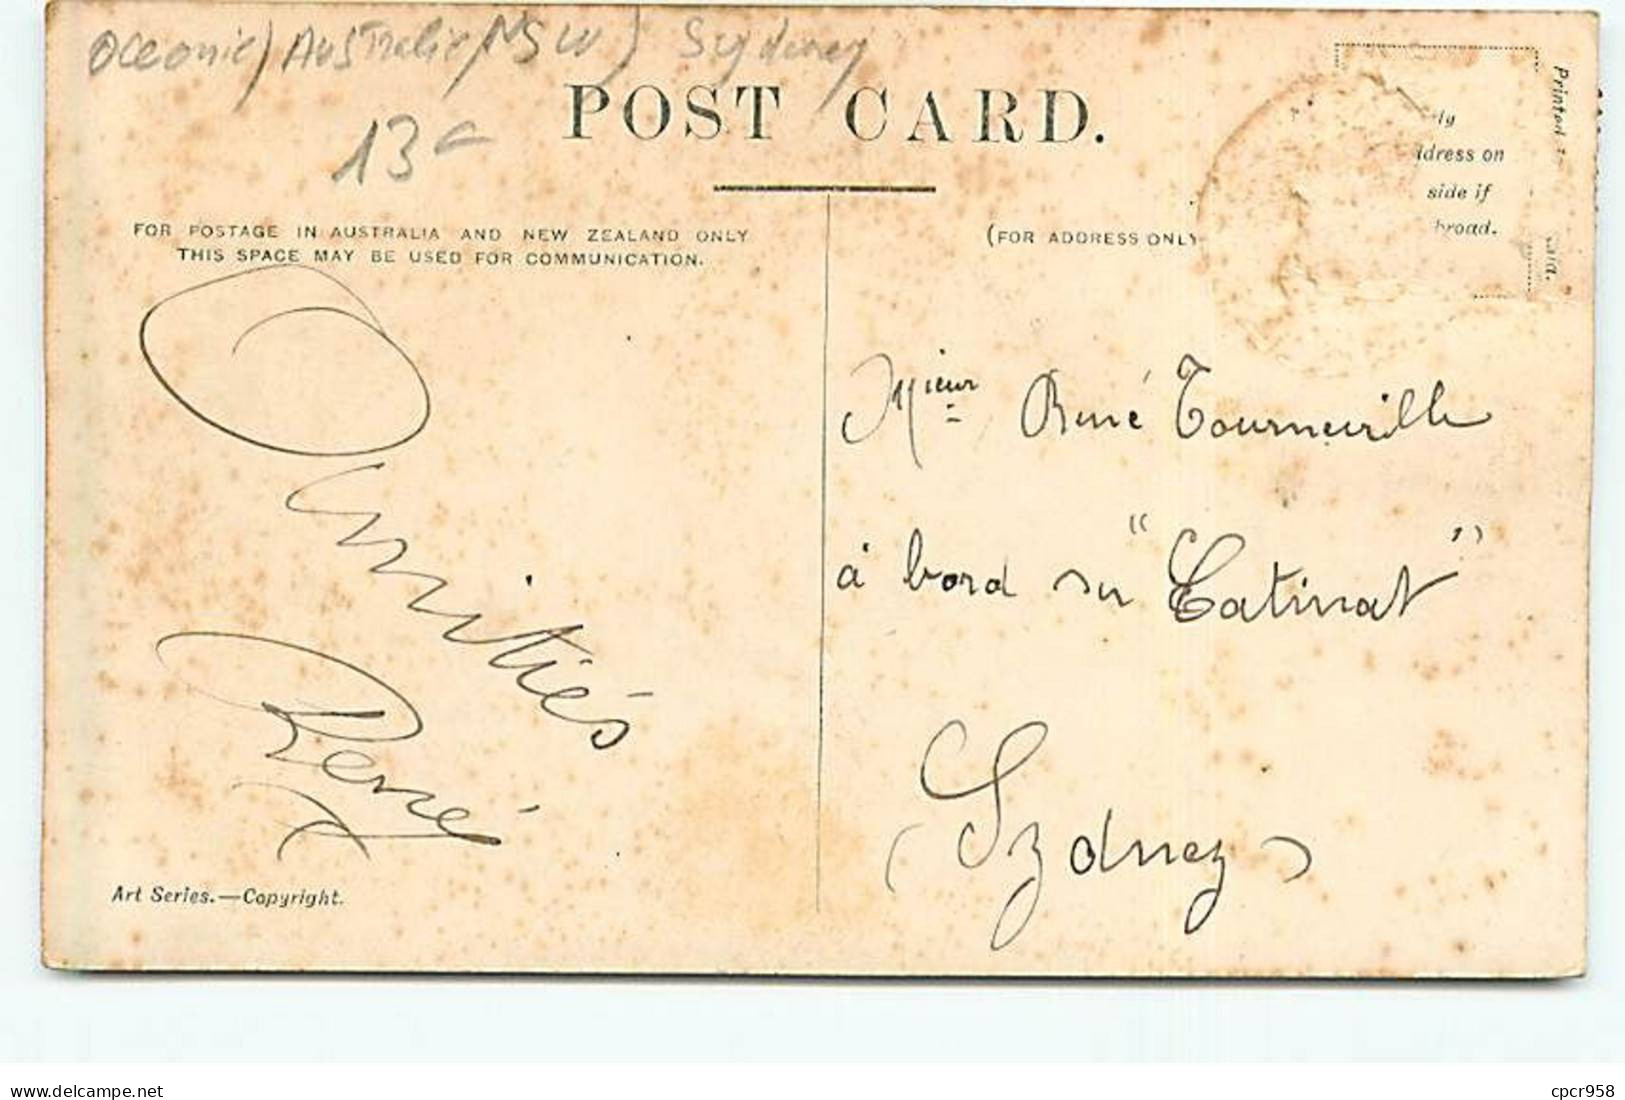 Oceanie) Australie/NSW) Sydney
13
POST CARD.
FOR POSTAGE IN AUSTRALIA AND NEW ZEALAND ONLY
THIS SPACE MAY BE USED FOR COMMUNICATION.
(FOR ADDRESS ONLY
ly
ddress on
side if
broad.
Printed
Amitiés
René
Mieur René Tourneville
à bord du "Catinat"
(Sydney)
Art Series.—Copyright.
www.delcampe.net
cpcr958